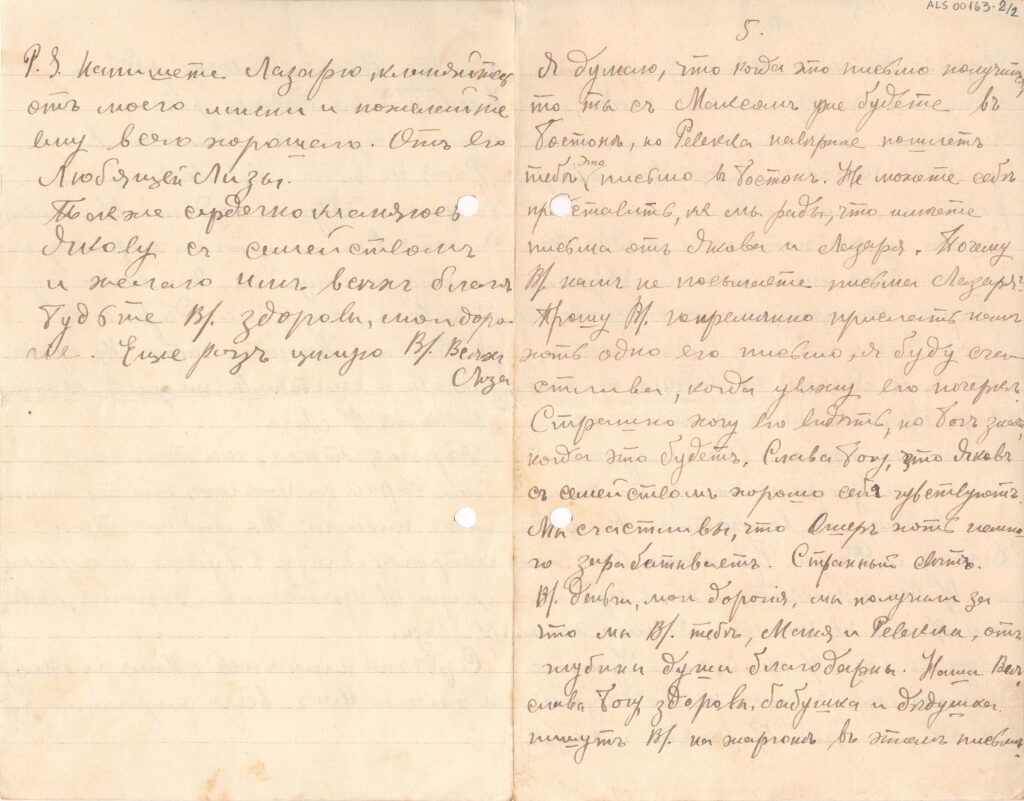 ALS 00163-2/2
P. S. Напишете Лазарю, кланяйтесь
отъ моего имени и пожелайте
ему всего хорошаго. Отъ его
Любящей Лизы.
Также сердечно кланяюсь
Якову съ семействомъ
и желаю имъ всѣхъ благъ
Будьте В/. здоровы, мои доро-
гіе. Еще разъ цѣлую В/. Ваша
Лиза
5.
Я думаю, что когда это письмо получится
то ты съ Максомъ уже будете въ
Бостонѣ, но Ревекка навѣрное пошлетъ
тебѣ это письмо въ Бостонъ. Не можете себѣ
представить, какъ мы рады, что имѣете
письма отъ Якова и Лазаря. Почему
В/. намъ не посылаете письма Лазаря?
Прошу В/. непремѣнно прислать намъ
хоть одно его письмо, я буду сча-
стлива, когда увижу его почеркъ.
Страшно хочу его видѣть, но Богъ знаетъ
когда это будетъ. Слава Богу, что Яковъ
съ семействомъ хорошо себя чувствуютъ.
Мы счастливы, что Ошеръ хоть немно-
го зарабатываетъ. Странный свѣтъ.
В/. деньги, мои дорогія, мы получили за
что мы В/. тебѣ, Маня и Ревекка, отъ
глубины души благодарны. Наши
слава Богу здоровы, бабушка и дѣдушка
пишутъ В/. на жаргонѣ въ этомъ письмѣ.